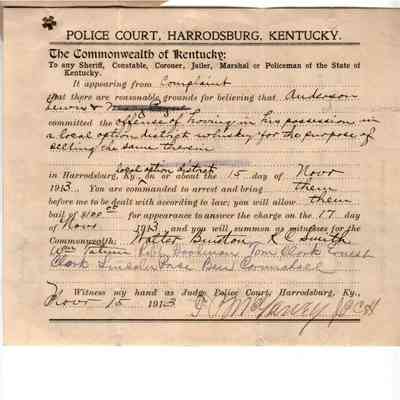 POLICE COURT, HARRODSBURG, KENTUCKY.
The Commonwealth of Kentucky:
To any Sheriff, Constable, Coroner, Jailer, Marshal or Policeman of the State of
Kentucky.
It appearing from Complaint
that there are reasonable grounds for believing that Anderson
Lewis &
committed the offense of having in his possession in
a local option district whisky for the purpose of
selling the same therein
local option district
in Harrodsburg, Ky., on or about the 15 day of Novr
1913... You are commanded to arrest and bring them
before me to be dealt with according to law; you will allow them
bail of $100 for appearance to answer the charge on the 17 day
of Novr 1913 and you will summon as witnesses for the
Commonwealth; Walter Burton, K C Smith
Wm Tatum Bookman Tom Clark Ernest
Clark Lincoln Ben
Witness my hand as Judge Police Court, Harrodsburg, Ky.,
Novr 15 1913